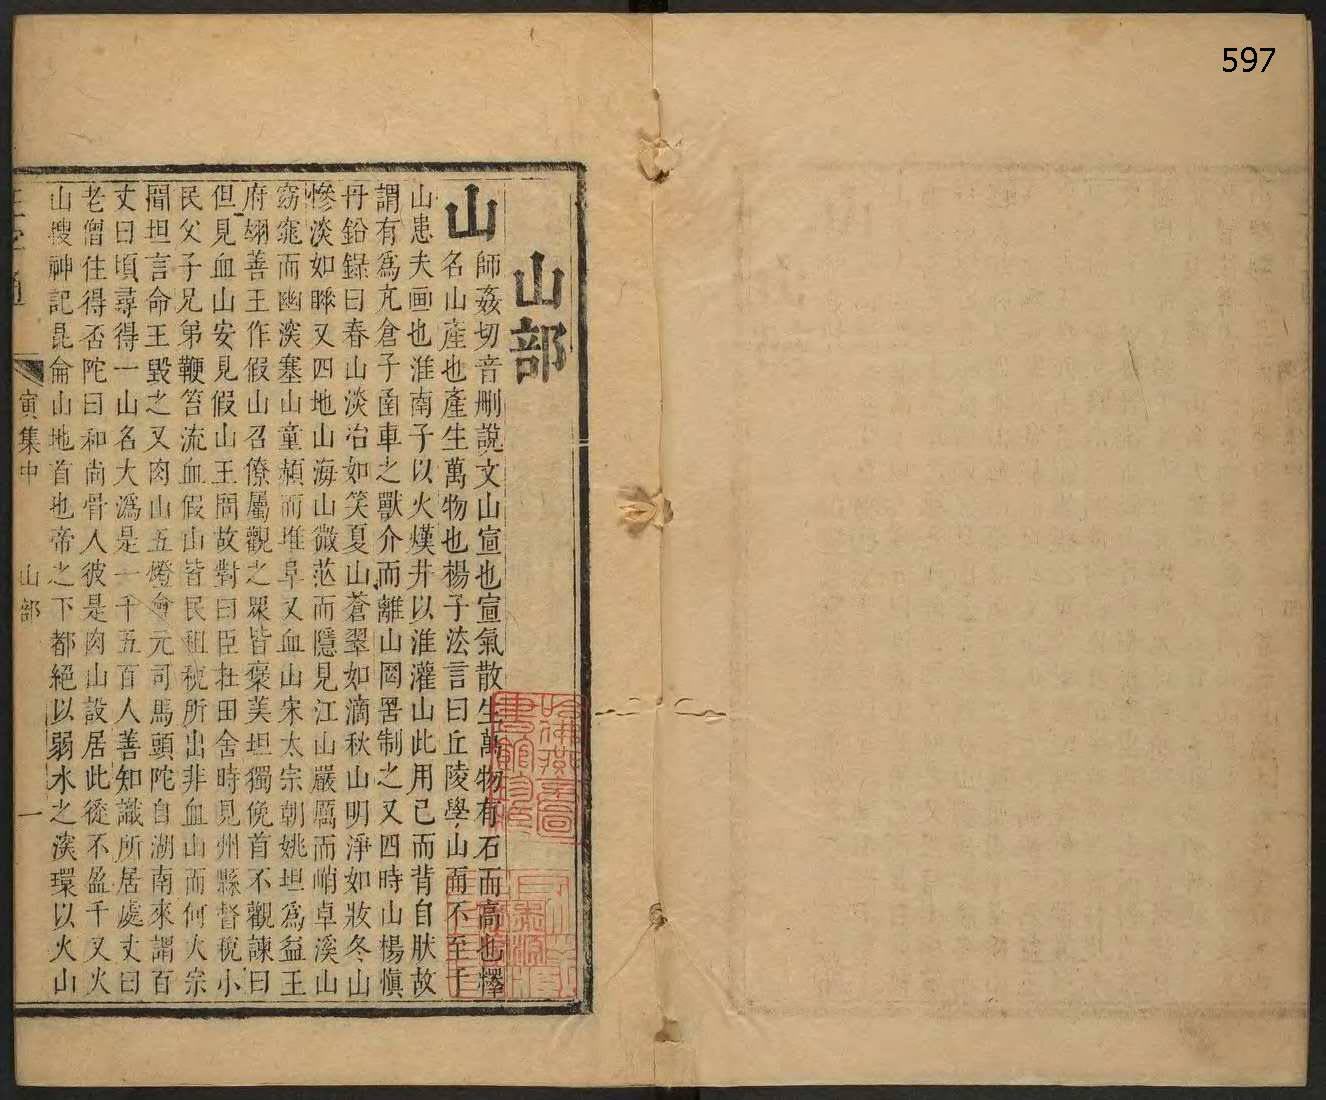 597
山部
山
師姦切音刪說文山宣也宣氣散生萬物有石而高也釋
名山產也產生萬物也楊子法言曰丘陵學山而不至于
山患夫画也淮南子以火熯井以淮灌山此用己而背自肰故
謂有爲亢倉子函車之獸介而離山罔罟制之又四時山楊愼
丹鉛錄曰春山淡冶如笑夏山蒼翠如滴秋山明淨如妝冬山
慘淡如睡又四地山海山微茫而隱見江山嚴厲而峭卓溪山
窈窕而幽深塞山童頳而堆阜又血山宋太宗朝姚坦爲益王
府翊善王作假山召僚屬觀之眾皆褒美坦獨俛首不觀諫曰
但見血山安見假山王問故對曰臣在田舍時見州縣督稅小
民父子兄弟鞭笞流血假山皆民租稅所出非血山而何太宗
聞坦言命王毀之又肉山五燈會元司馬頭陀自湖南來謂百
丈曰頃尋得一山名大潙是一千五百人善知識所居處丈曰
老僧住得否陀曰和尚骨人彼是肉山設居此徒不盈千又火
山搜神記昆侖山地首也帝之下都絕以弱水之深環以火山
寅集中
山部
一